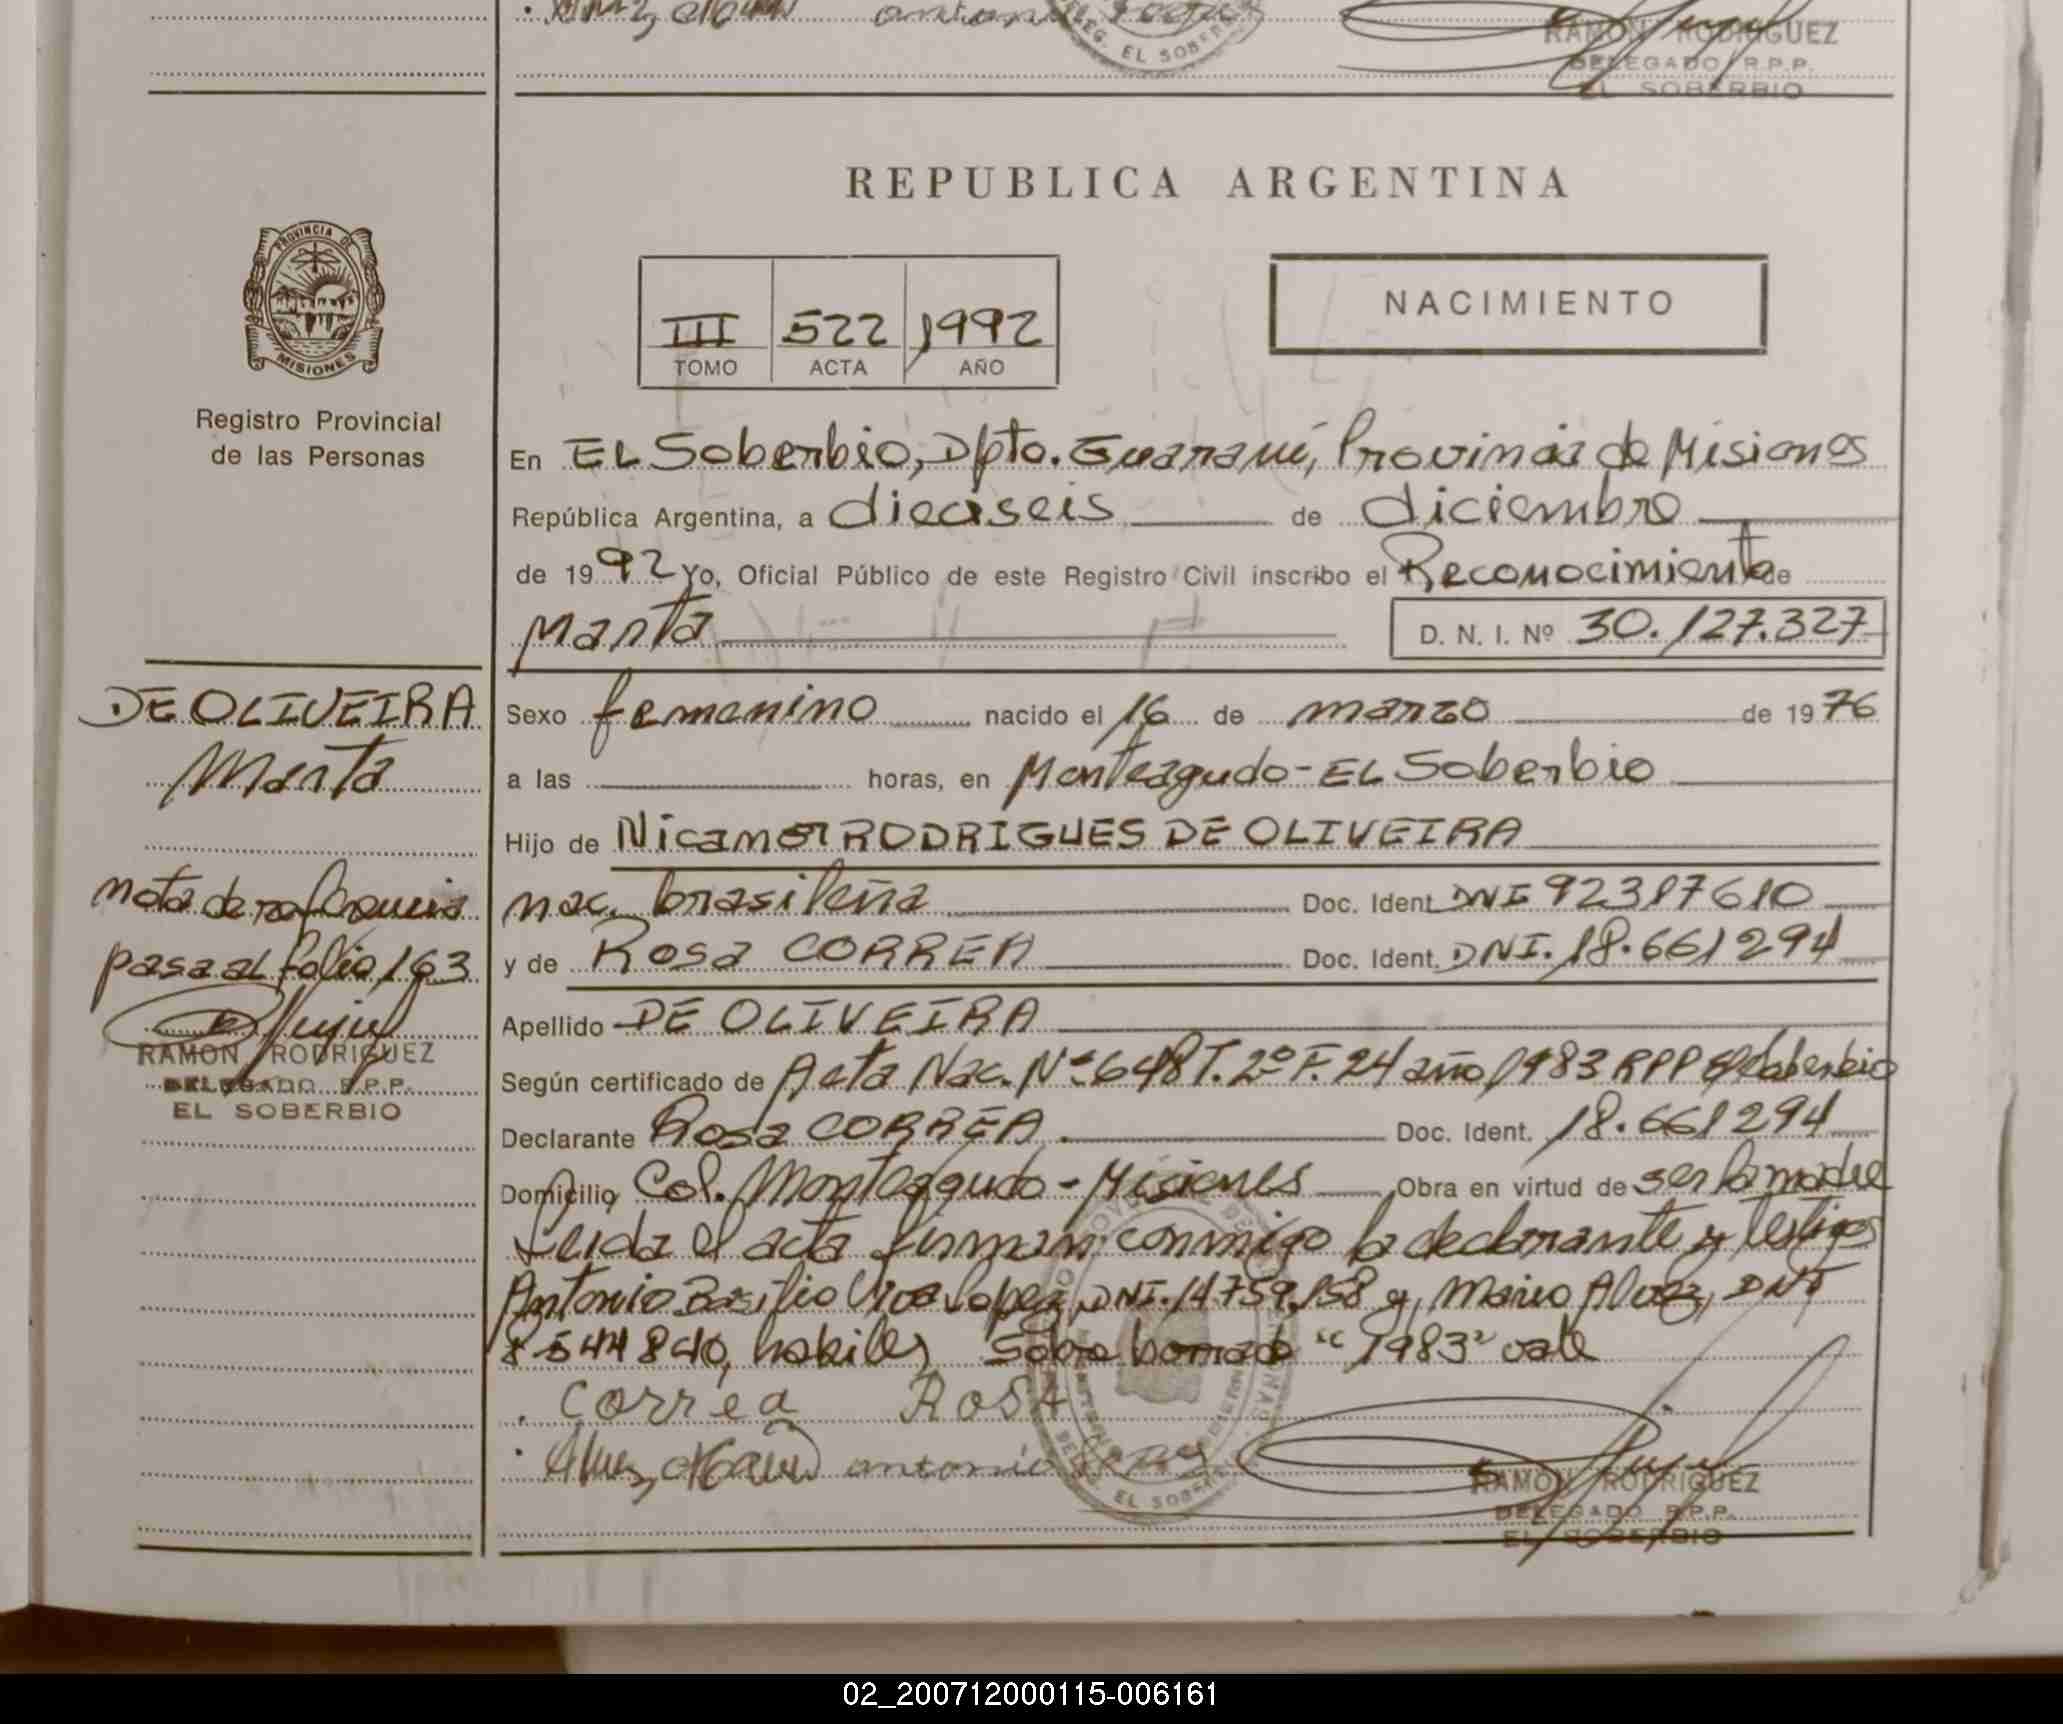 antonio
REG. EL SOBER
RAMON RODRIGUEZ
DELEGADO R.P.P.
EL SOBERBIO
REPUBLICA ARGENTINA
PROVINCIA DE
MISIONES
Registro Provincial
de las Personas
III 522 1992
TOMO ACTA AÑO
NACIMIENTO
En EL Soberbio, Dpto. Guaraní, Provincia de Misiones
República Argentina, a dieciseis de diciembre
de 1992 Yo, Oficial Público de este Registro Civil inscribo el Reconocimiento de
Marta D. N. I. Nº 30.127.327
DE OLIVEIRA
Marta
nota de referencia
pasa al folio 163
RAMON RODRIGUEZ
DELEGADO R.P.P.
EL SOBERBIO
Sexo femenino nacido el 16 de marzo de 1976
a las horas, en Monteagudo - EL Soberbio
Hijo de Nicamor RODRIGUES DE OLIVEIRA
nac. brasileña Doc. Ident. DNI 92317610
y de Rosa CORREA Doc. Ident. DNI. 18.661294
Apellido DE OLIVEIRA
Según certificado de Acta Nac. Nº 648 T. 2º F. 24 año 1983 RPP El Soberbio
Declarante Rosa CORREA Doc. Ident. 18.661294
Domicilio Col. Monteagudo - Misiones Obra en virtud de ser la madre
Leida el acta firman conmigo la declarante y testigos
Antonio Basilio Lopez, DNI. 14759.158 y, Mario Alvez, DNI
8544840, habiles Sobre borrado "1983" vale
Correa Rosa
antonio
EL SOBER
RAMON RODRIGUEZ
DELEGADO R.P.P.
EL SOBERBIO
02_200712000115-006161